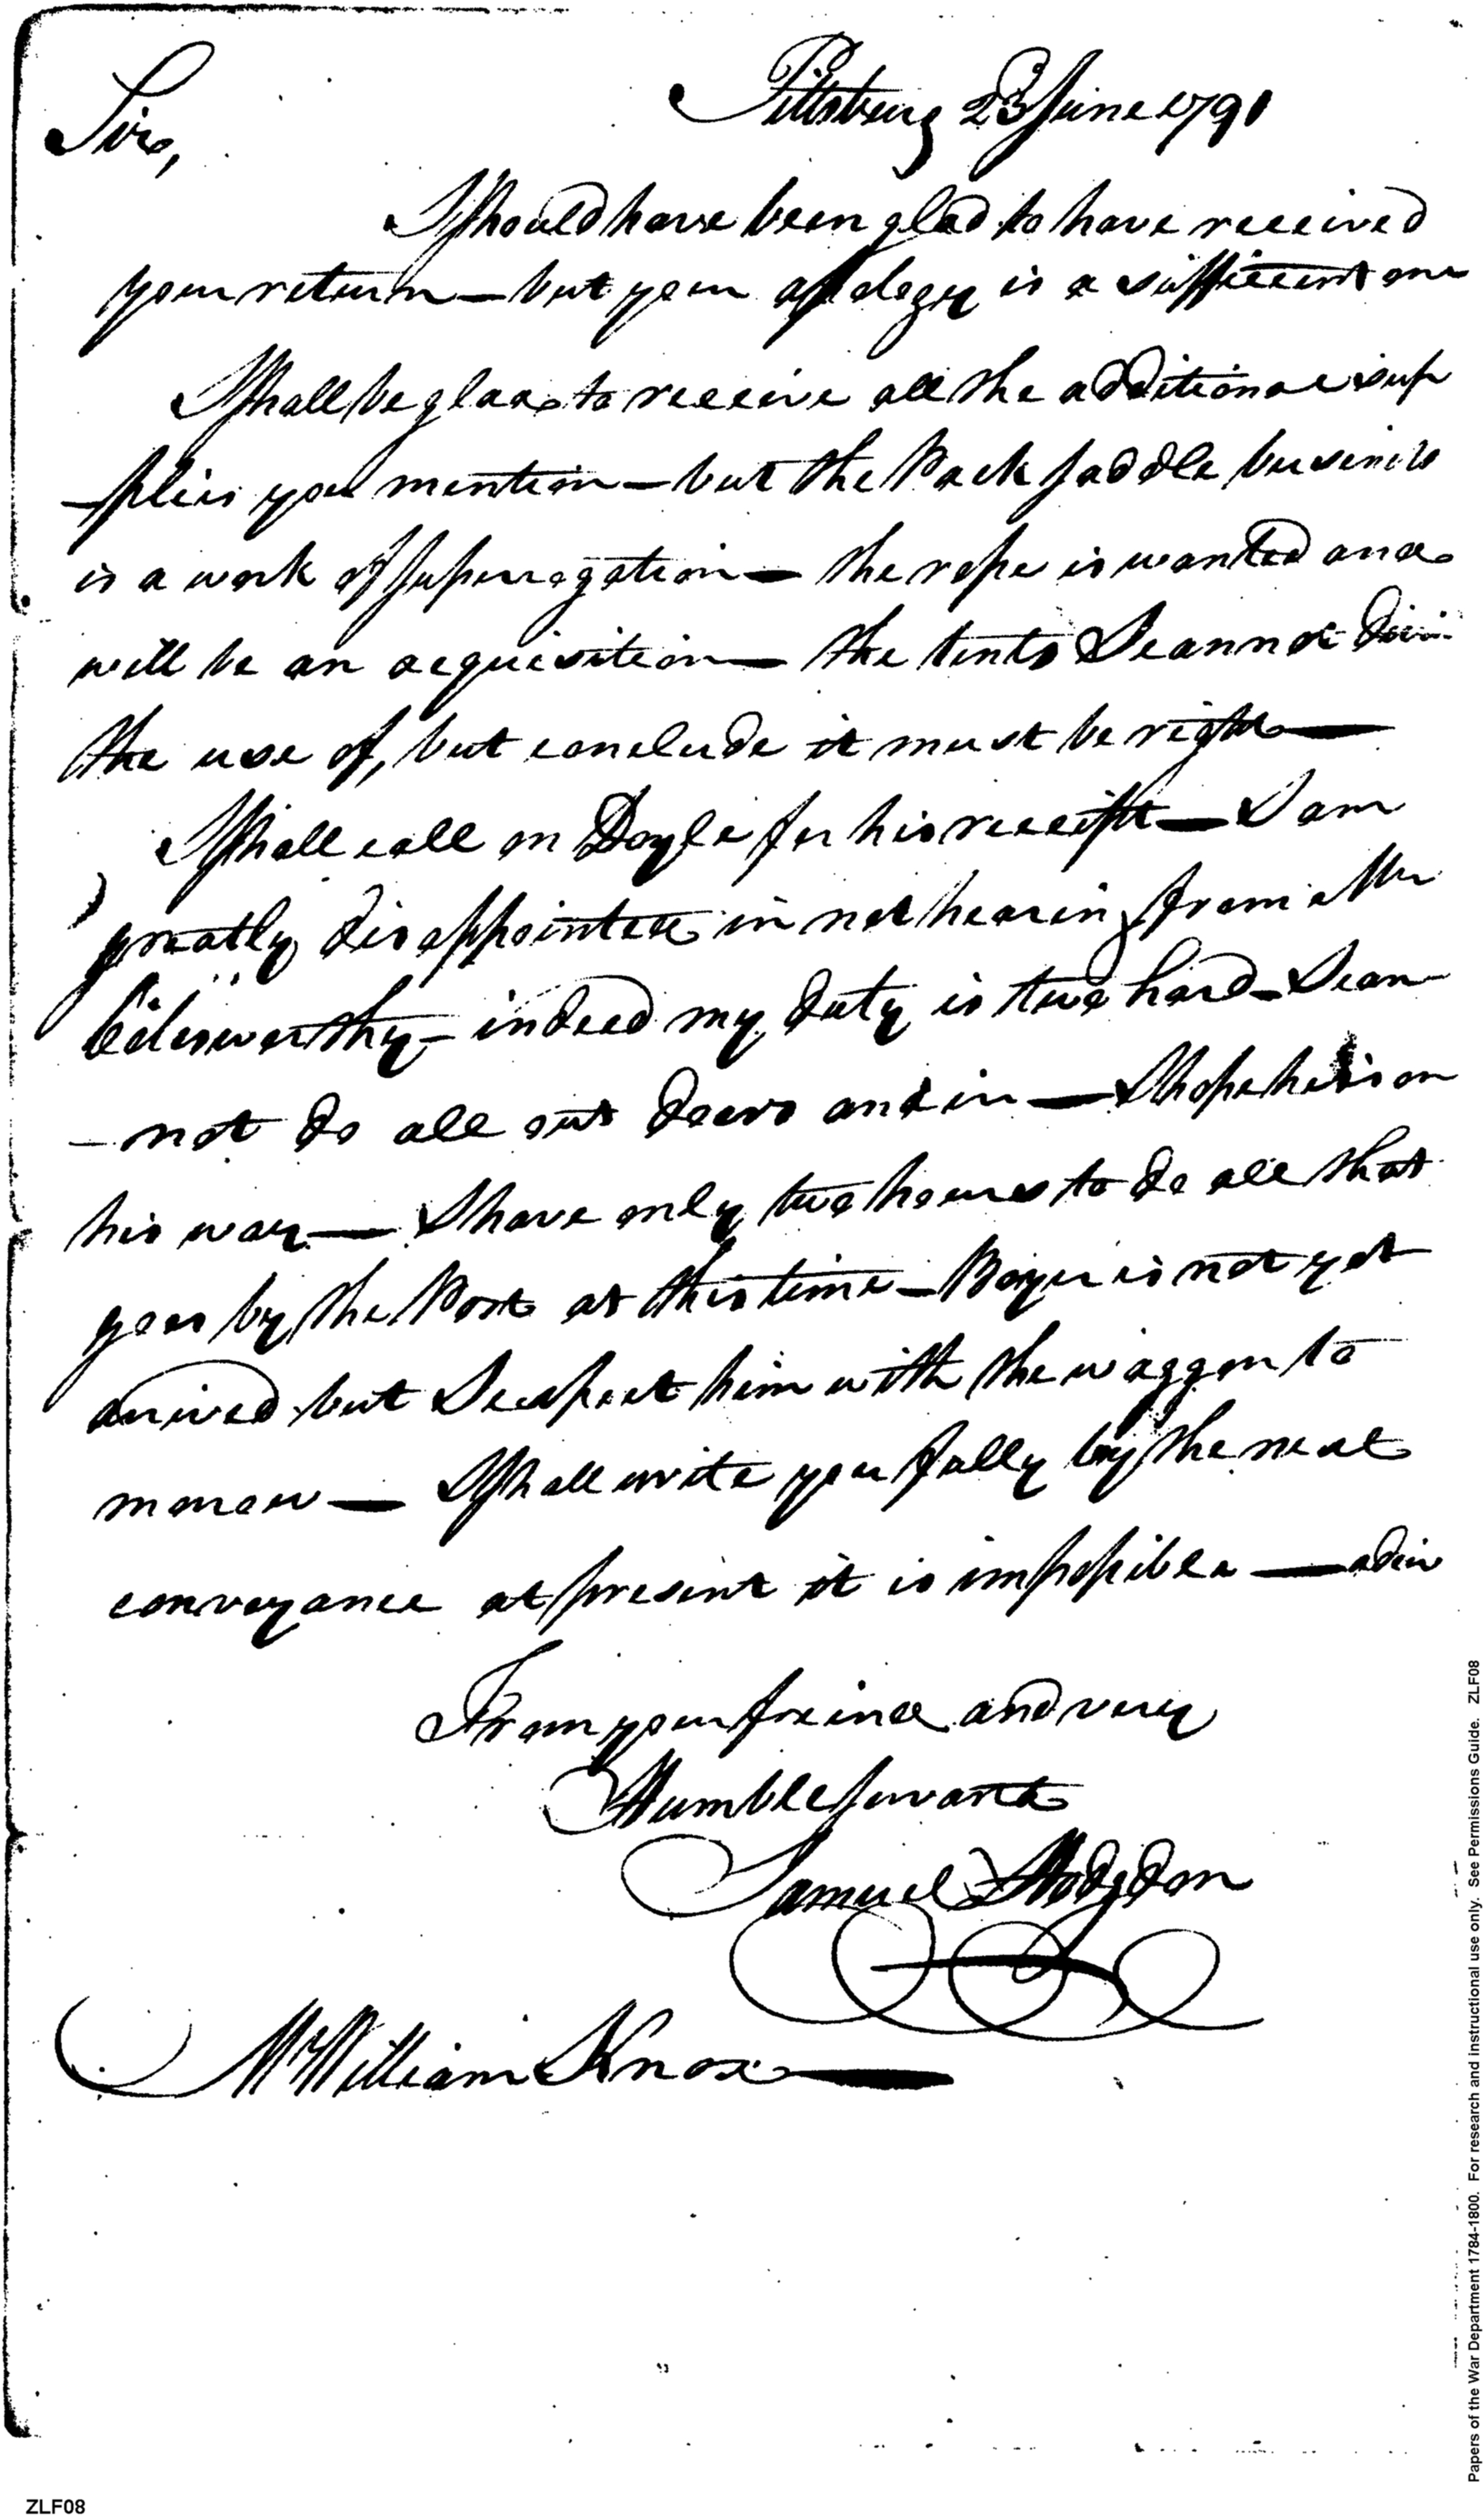 Pittsburg 23 June 1791
Sir,
I should have been glad to have received
your return — but your apology is a sufficient one
I shall be glad to receive all the additional sup
-plies you mention — but the Pack saddle business
is a work of supererogation — the rope is wanted and
will be an acquisition — the tents I cannot
the use of, but conclude it must be right —
I shall call on Doyle for his receipt — I am
greatly disappointed in not hearing from Mr
— indeed my duty is two hard — I can
- not do all out doors and in — I hope he is on
his way — I have only two hours to do all that
goes by the Post at this time — is not yet
arrived but I expect him with the waggon to
morrow — I shall write you fully by the next
conveyance at present it is impossible — adiu
I am your freind and very
Humble servant
Samuel Hodgdon
Mr William Knox —
Papers of the War Department 1784-1800. For research and instructional use only. See Permissions Guide. ZLF08
ZLF08